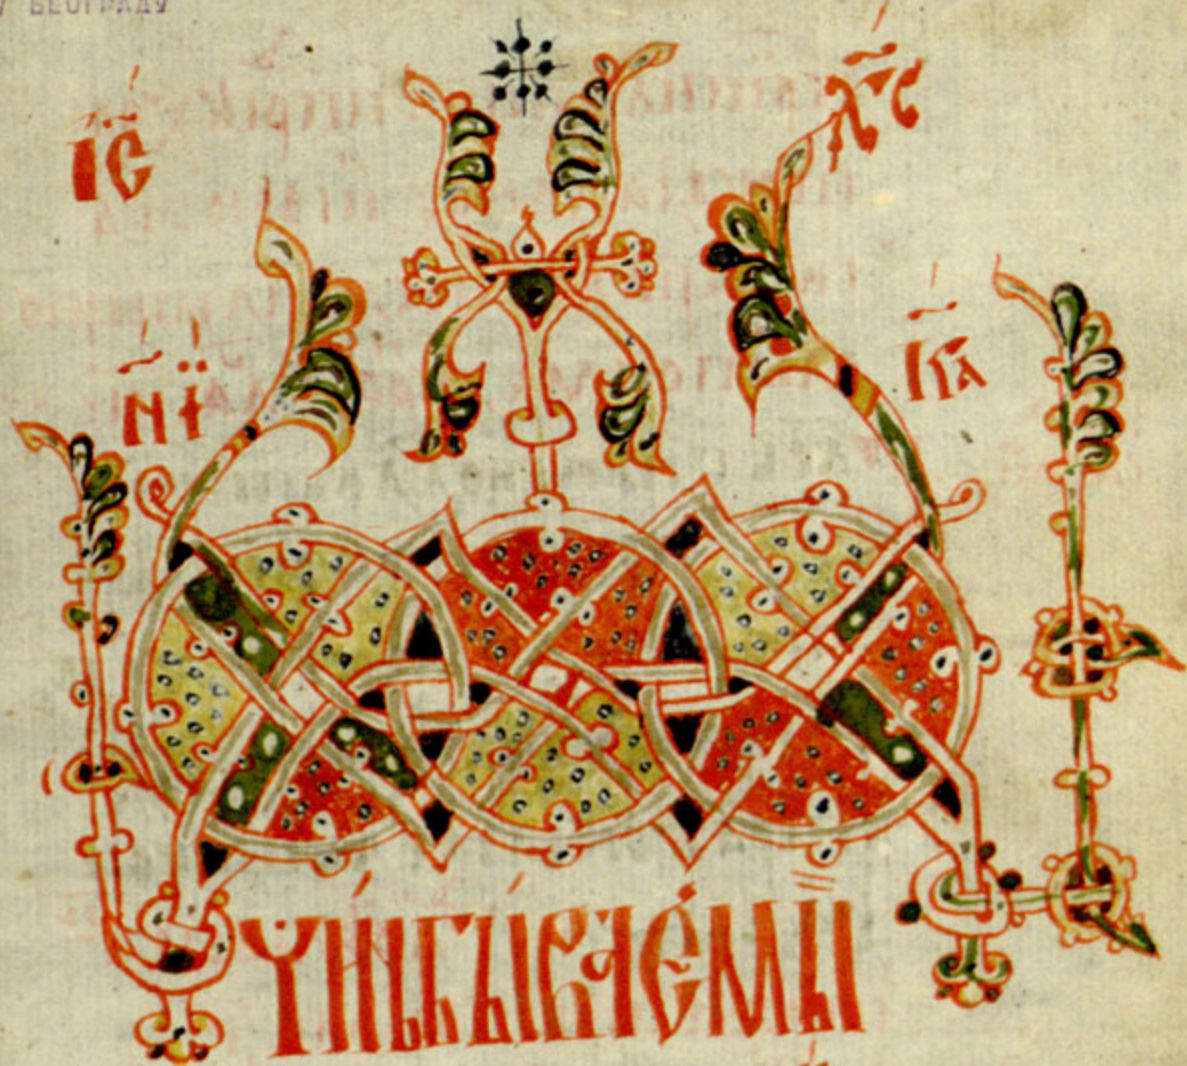 У БЕОГРАДУ
І҃С Х҃С
Н҃Ї К҃А
ЧИ́НЬБЫ́ВАЕ́МЫ